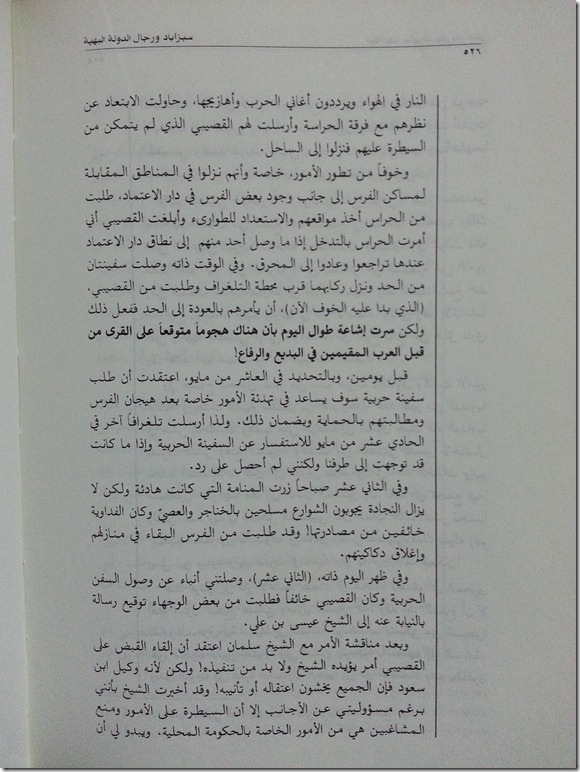 سبزاباد ورجال الدولة البهية
٥٢٦
النار في الهواء ويرددون أغاني الحرب وأهازيجها، وحاولت الابتعاد عن
نظرهم مع فرقة الحراسة وأرسلت لهم القصيبي الذي لم يتمكن من
السيطرة عليهم فنزلوا إلى الساحل.
وخوفاً من تطور الأمور، خاصة وأنهم نزلوا في المناطق المقابلة
لمساكن الفرس إلى جانب وجود بعض الفرس في دار الاعتماد، طلبت
من الحراس أخذ مواقعهم والاستعداد للطوارىء وأبلغت القصيبي أني
أمرت الحراس بالتدخل إذا ما وصل أحد منهم إلى نطاق دار الاعتماد
عندها تراجعوا وعادوا إلى المحرق. وفي الوقت ذاته وصلت سفينتان
من الحد ونزل ركابهما قرب محطة التلغراف وطلبت من القصيبي.
(الذي بدا عليه الخوف الآن)، أن يأمرهم بالعودة إلى الحد ففعل ذلك
ولكن سرت إشاعة طوال اليوم بأن هناك هجوماً متوقعاً على القرى من
قبل العرب المقيمين في البديع والرفاع!
قبل يومين، وبالتحديد في العاشر من مايو، اعتقدت أن طلب
سفينة حربية سوف يساعد في تهدئة الأمور خاصة بعد هيجان الفرس
ومطالبتهم بالحماية وبضمان ذلك. ولذا أرسلت تلغرافاً آخر في
الحادي عشر من مايو للاستفسار عن السفينة الحربية وإذا ما كانت
قد توجهت إلى طرفنا ولكنني لم أحصل على رد.
وفي الثاني عشر صباحاً زرت المنامة التي كانت هادئة ولكن لا
يزال النجادة يجوبون الشوارع مسلحين بالخناجر والعصيّ وكان الفداوية
خائفين من مصادرتها! وقد طلبت من الفرس البقاء في منازلهم
وإغلاق دكاكينهم.
وفي ظهر اليوم ذاته، (الثاني عشر)، وصلتني أنباء عن وصول السفن
الحربية وكان القصيبي خائفاً فطلبت من بعض الوجهاء توقيع رسالة
بالنيابة عنه إلى الشيخ عيسى بن علي.
وبعد مناقشة الأمر مع الشيخ سلمان اعتقد أن إلقاء القبض على
القصيبي أمر يؤيده الشيخ ولا بد من تنفيذه! ولكن لأنه وكيل ابن
سعود فإن الجميع يخشون اعتقاله أو تأنيبه! وقد أخبرت الشيخ بأنني
برغم مسؤوليتي عن الأجانب إلا أن السيطرة على الأمور ومنع
المشاغبين هي من الأمور الخاصة بالحكومة المحلية. ويبدو لي أن